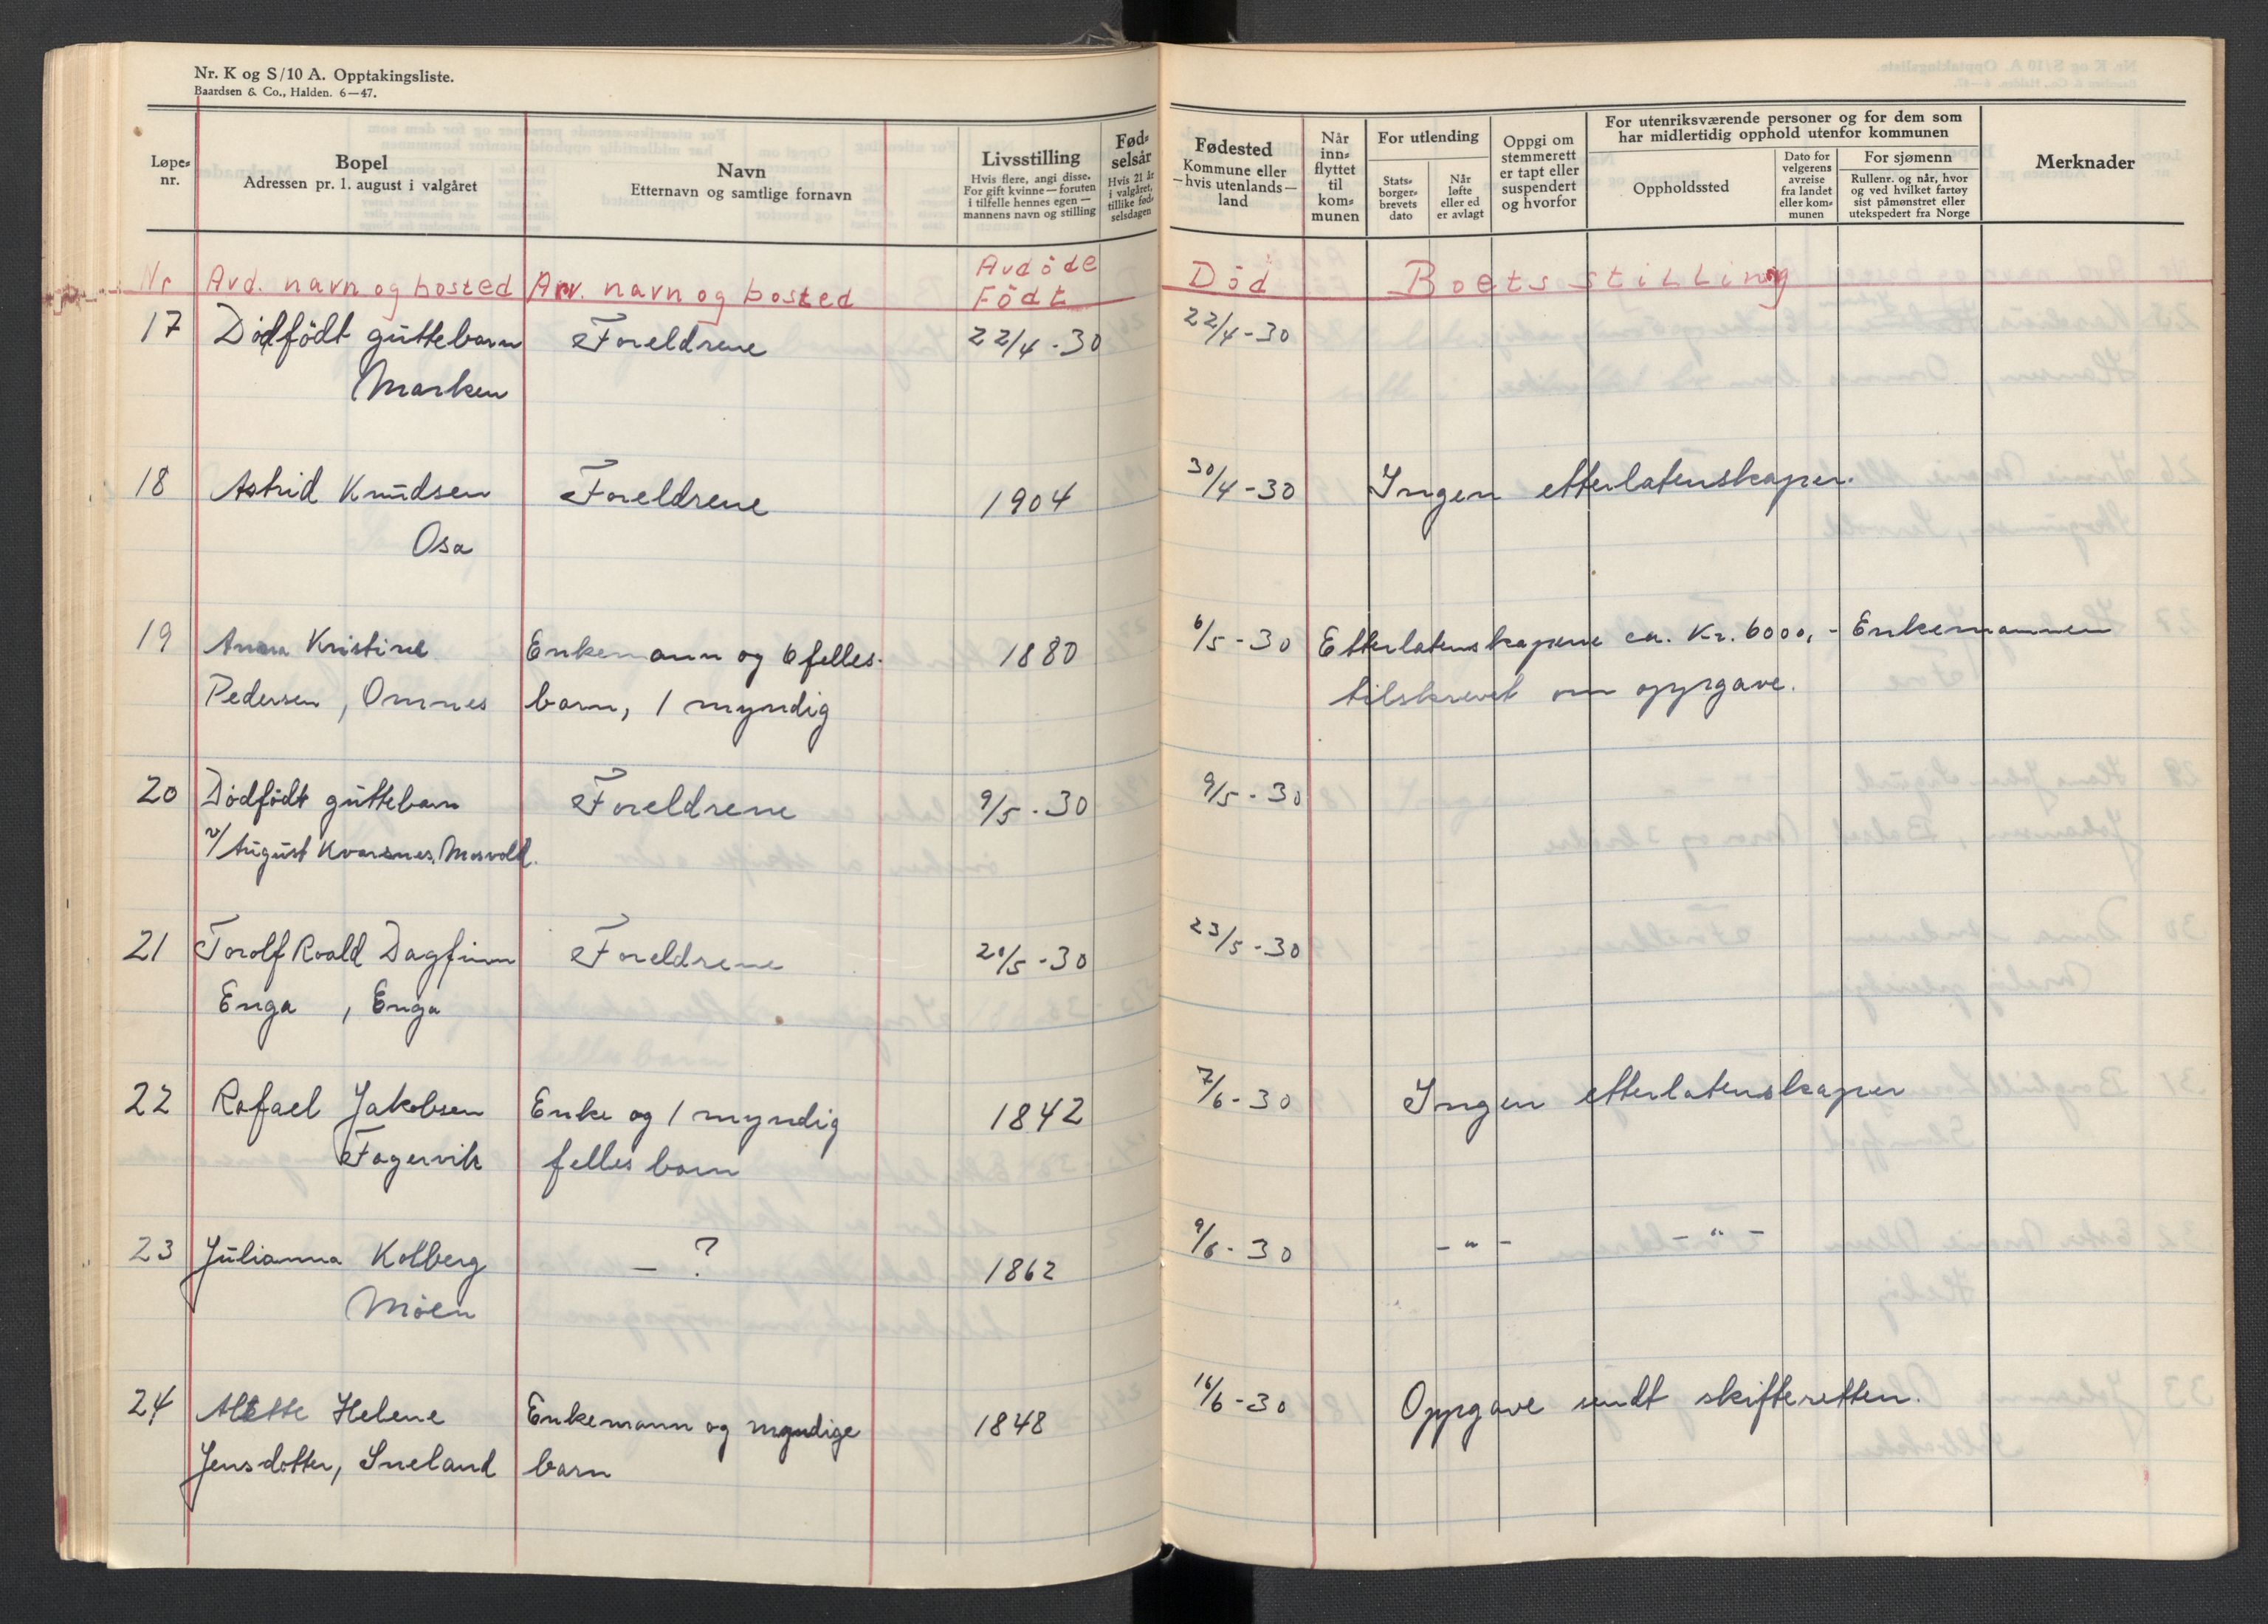 Nr. K og S/10 A. Opptakingsliste.
Baardsen & Co., Halden. 6—47.
Løpe-
nr.
Bopel
Adressen pr. 1. august i valgåret
Navn
Etternavn og samtlige fornavn
Livsstilling
Hvis flere, angi disse.
For gift kvinne — foruten
i tilfelle hennes egen —
mannens navn og stilling
Fød-
selsår
Hvis 21 år
i valgåret,
tillike fød-
selsdagen
Fødested
Kommune eller
—hvis utenlands—
land
Når
inn-
flyttet
til
kom-
munen
For utlending
Stats-
borger-
brevets
dato
Når
løfte
eller ed
er avlagt
Oppgi om
stemmerett
er tapt eller
suspendert
og hvorfor
For utenriksværende personer og for dem som
har midlertidig opphold utenfor kommunen
Oppholdssted
Dato for
velgerens
avreise
fra landet
eller kom-
munen
For sjømenn
Rullenr. og når, hvor
og ved hvilket fartøy
sist påmønstret eller
utekspedert fra Norge
Merknader
Nr Avd. navn og bosted Arv. navn og bosted Avdöde
Födt Död Boets stilling
17 Dödfödt guttebarn Foreldrene 22/4-30 22/4-30
Marken
18 Astrid Knudsen Foreldrene 1904 30/4-30 Ingen etterlatenskaper.
Osa
19 Anna Kristine Enkemann og 6 felles- 1880 6/5-30 Etterlatenskapene ca. Kr. 6000,- Enkemannen
Pedersen, Omnes barn, 1 myndig tilskrevet om oppgave.
20 Dödfödt guttebarn Foreldrene 9/5-30 9/5-30
v/August Kvarsnes, Mosvold.
21 Torolf Roald Dagfinn Foreldrene 20/5-30 23/5-30
Enga, Enga
22 Rafael Jakobsen Enke og 1 myndig 1842 7/6-30 Ingen etterlatenskaper
Fagervik felles barn
23 Julianna Kolberg — ? 1862 9/6-30 -"- -"-
Möen
24 Alette Helene Enkemann og myndige 1848 16/6-30 Oppgave sendt skifteretten.
Jensdotter, Sneland barn